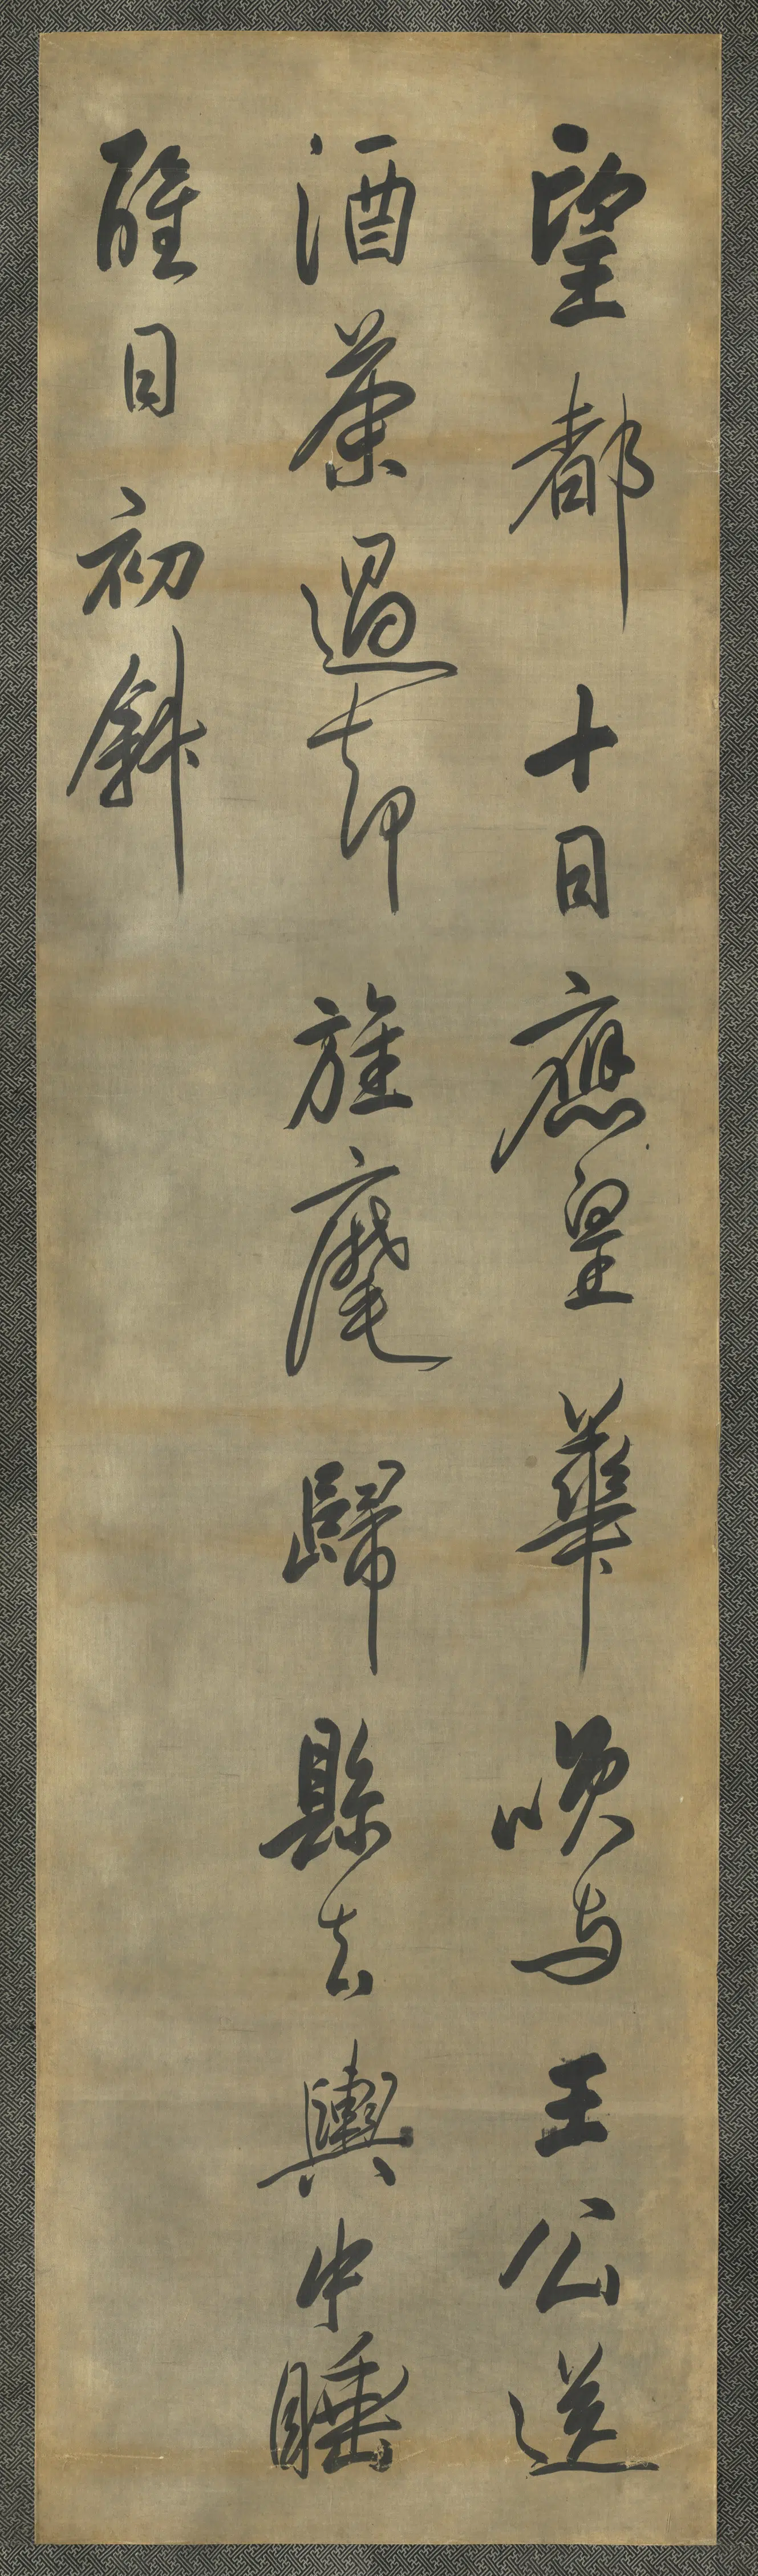 望都十日應皇華唤与王公送
酒茶過却旌麾歸縣去輿中睡
醒日初斜